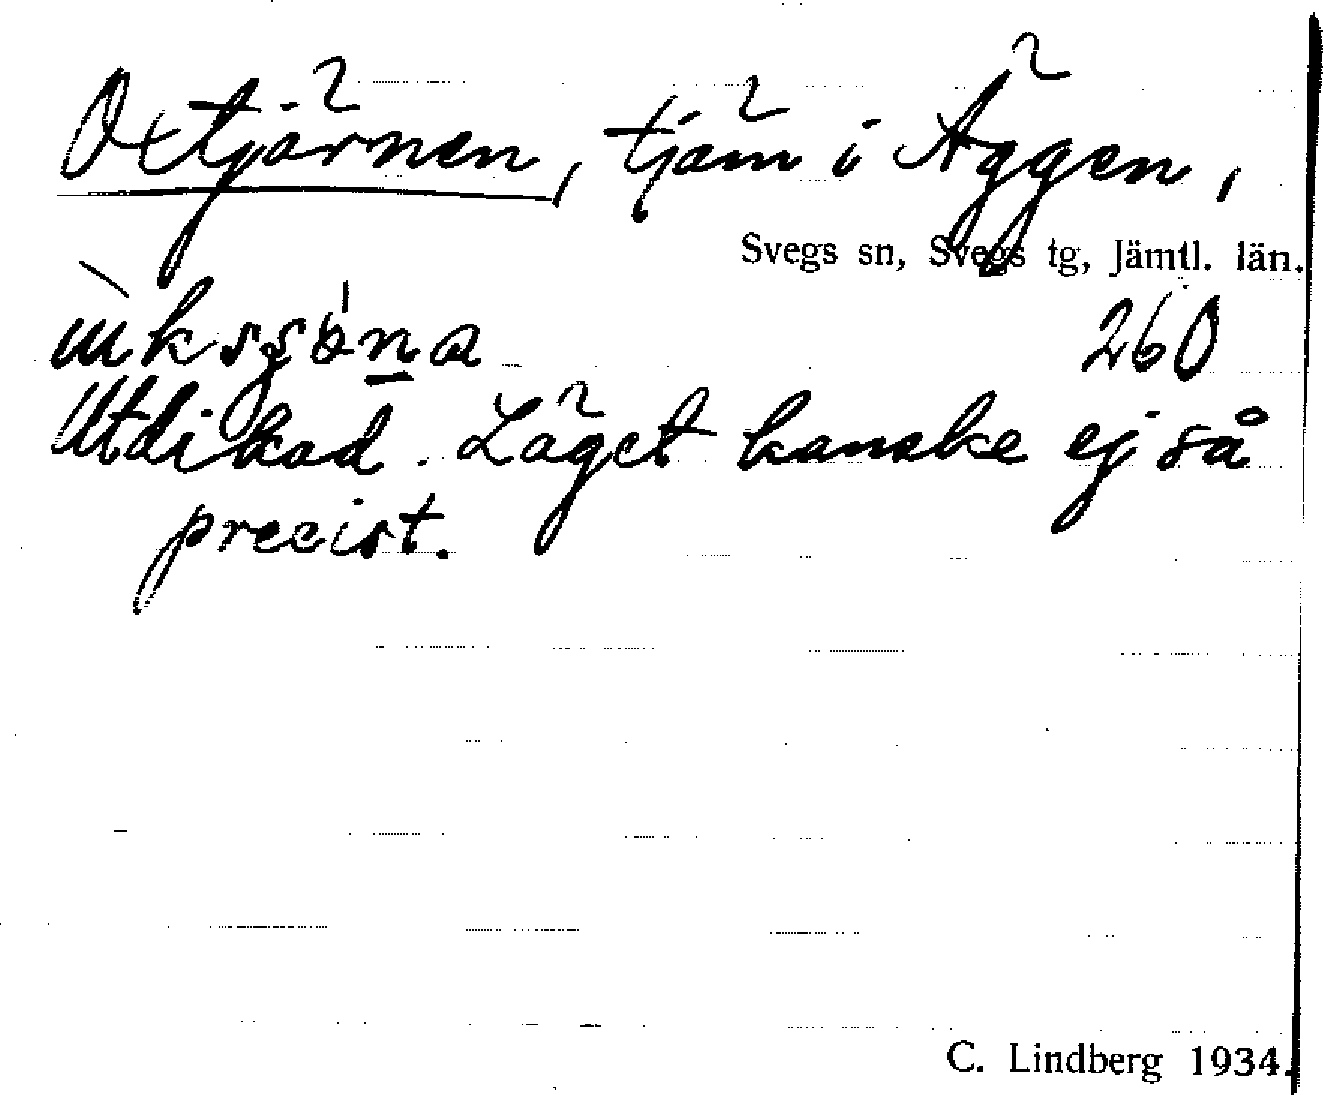 Oxtjärnen, tjärn i Äggen,
Svegs sn, Svegs tg, Jämtl. län.
260
Utdikad. Läget kanske ej så
precist.
C. Lindberg 1934.